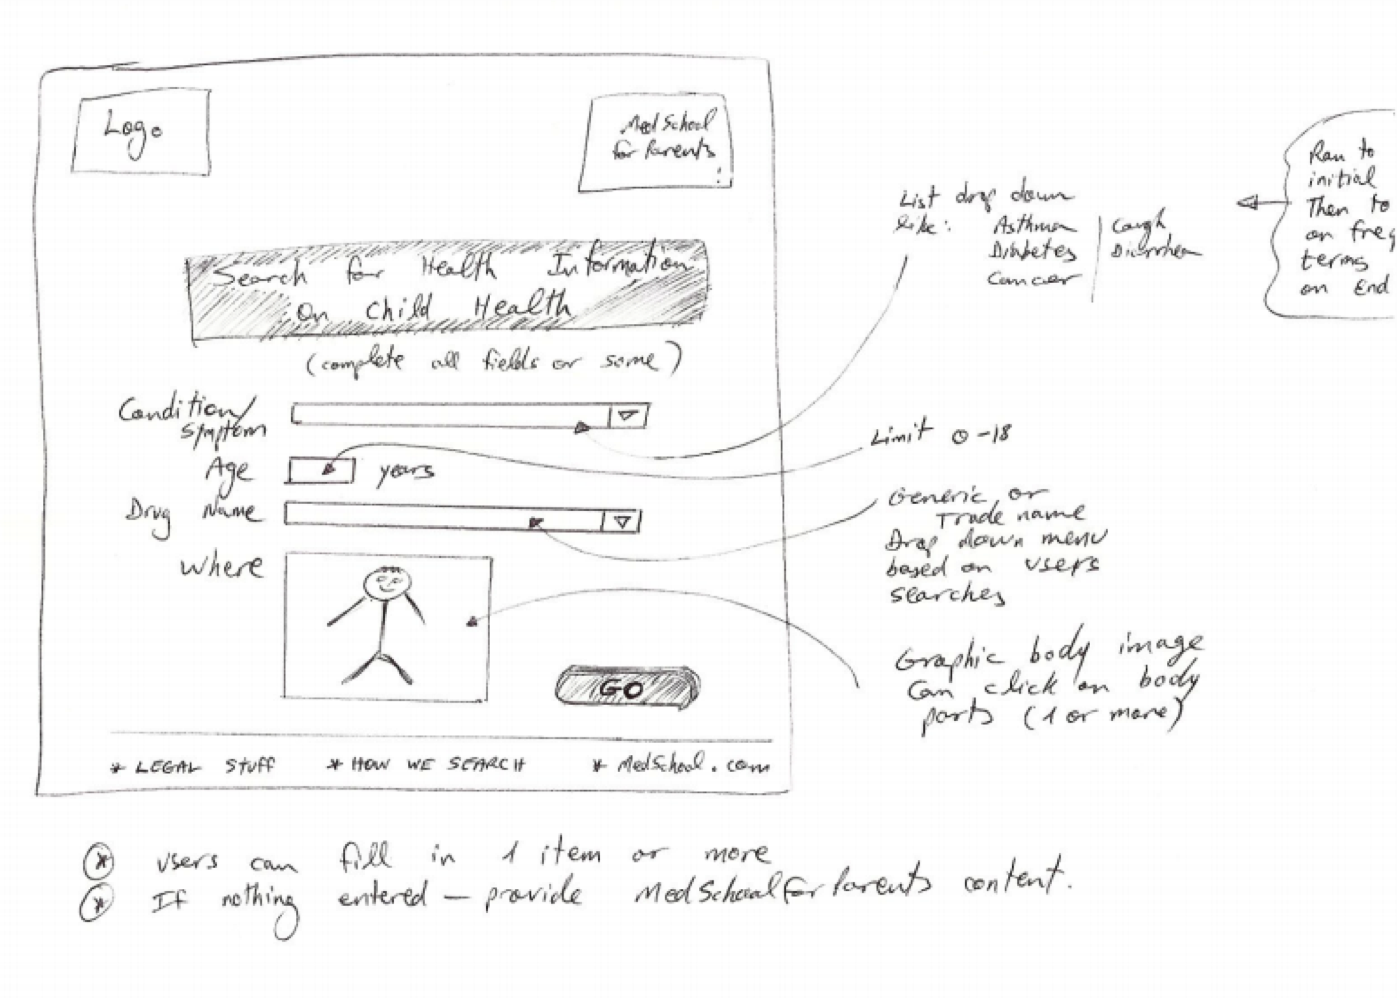 Logo
MedSchool
for Parents
Search for Health Information
On Child Health
(complete all fields or some)
Condition/
Symptom
Age
years
Drug Name
Where
GO
* LEGAL STUFF * HOW WE SEARCH * MedSchool.com
List drop down
like: Asthma | Cough
Diabetes | Diarrhea
Cancer
Limit 0-18
Generic or
Trade name
Drop down menu
based on users
searches
Graphic body image
Can click on body
parts (1 or more)
to
initial
Then to
on freq
terms
on End
* Users can fill in 1 item or more
* If nothing entered - provide MedSchoolforParents content.